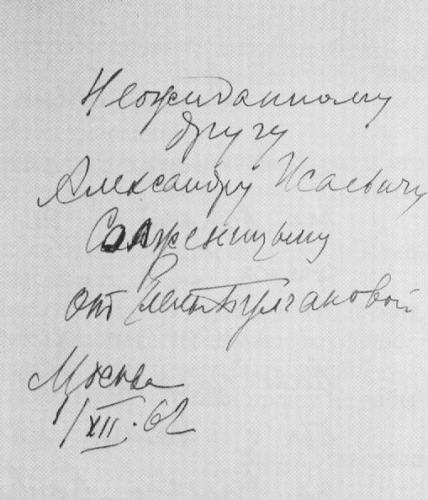 Неожиданному
другу
Александру Исаевичу
Солженицыну
от Елены Булгаковой
Москва
1/XII.62